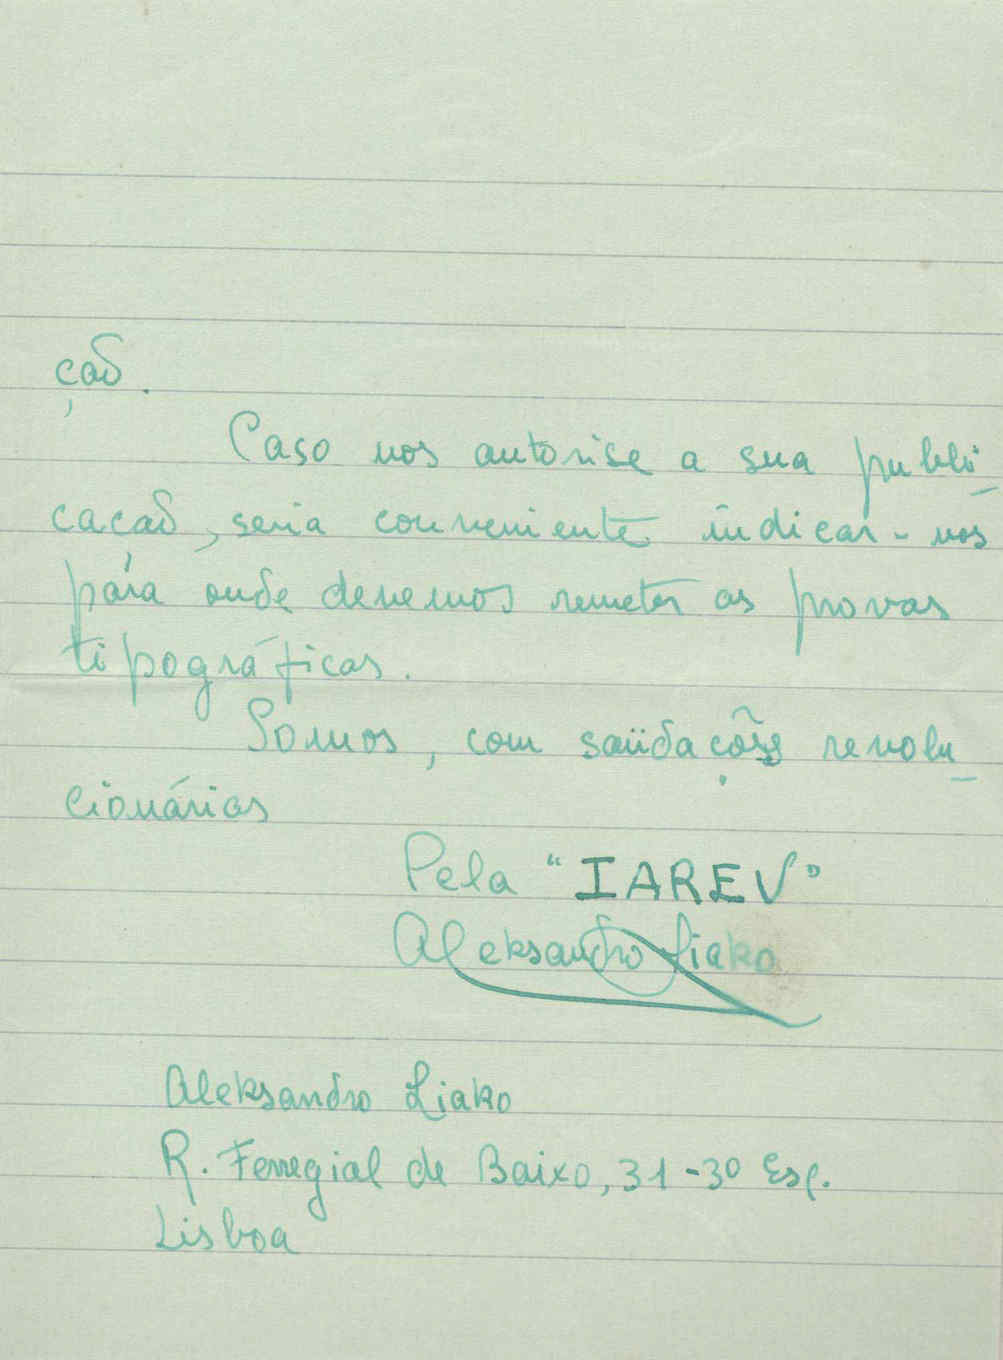 ção.
Caso nos autorise a sua publi-
cacão, seria conveniente indicar-nos
para onde devemos remeter as provas
tipográficas.
Somos, com saüdações revolu-
cionárias
Pela "IAREV"
Aleksandro Liako
Aleksandro Liako
R. Ferregial de Baixo, 31-3º Esq.
Lisboa